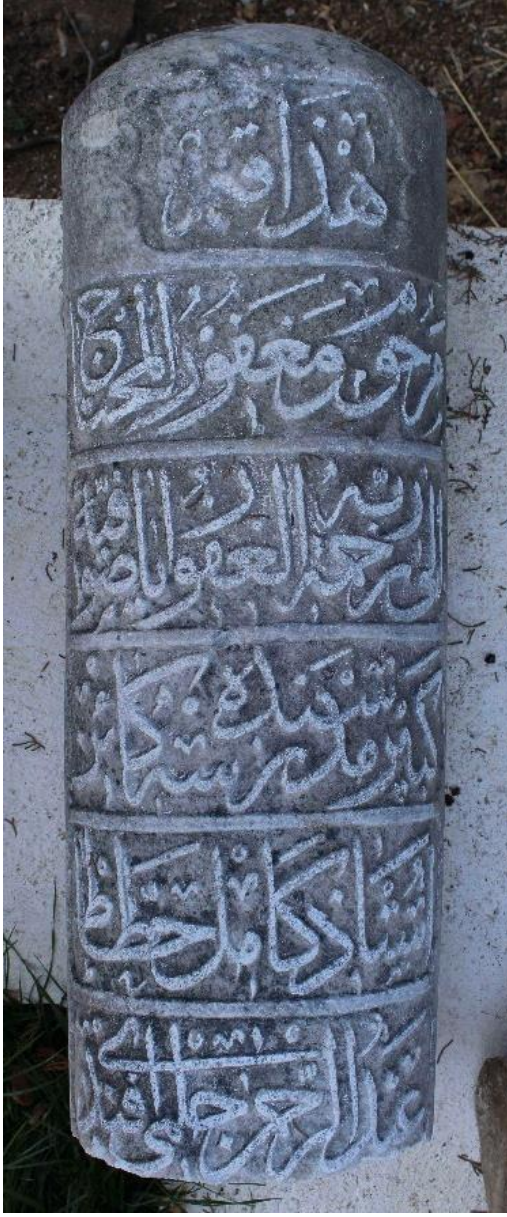 هذا قبر
مرحوم و مغفور المحتاج
الى رحمة ربه الغفور اياصوفيه
كبير مدرسه
استاذ كامل خطاط
عبد الرحمن چلبى افندى